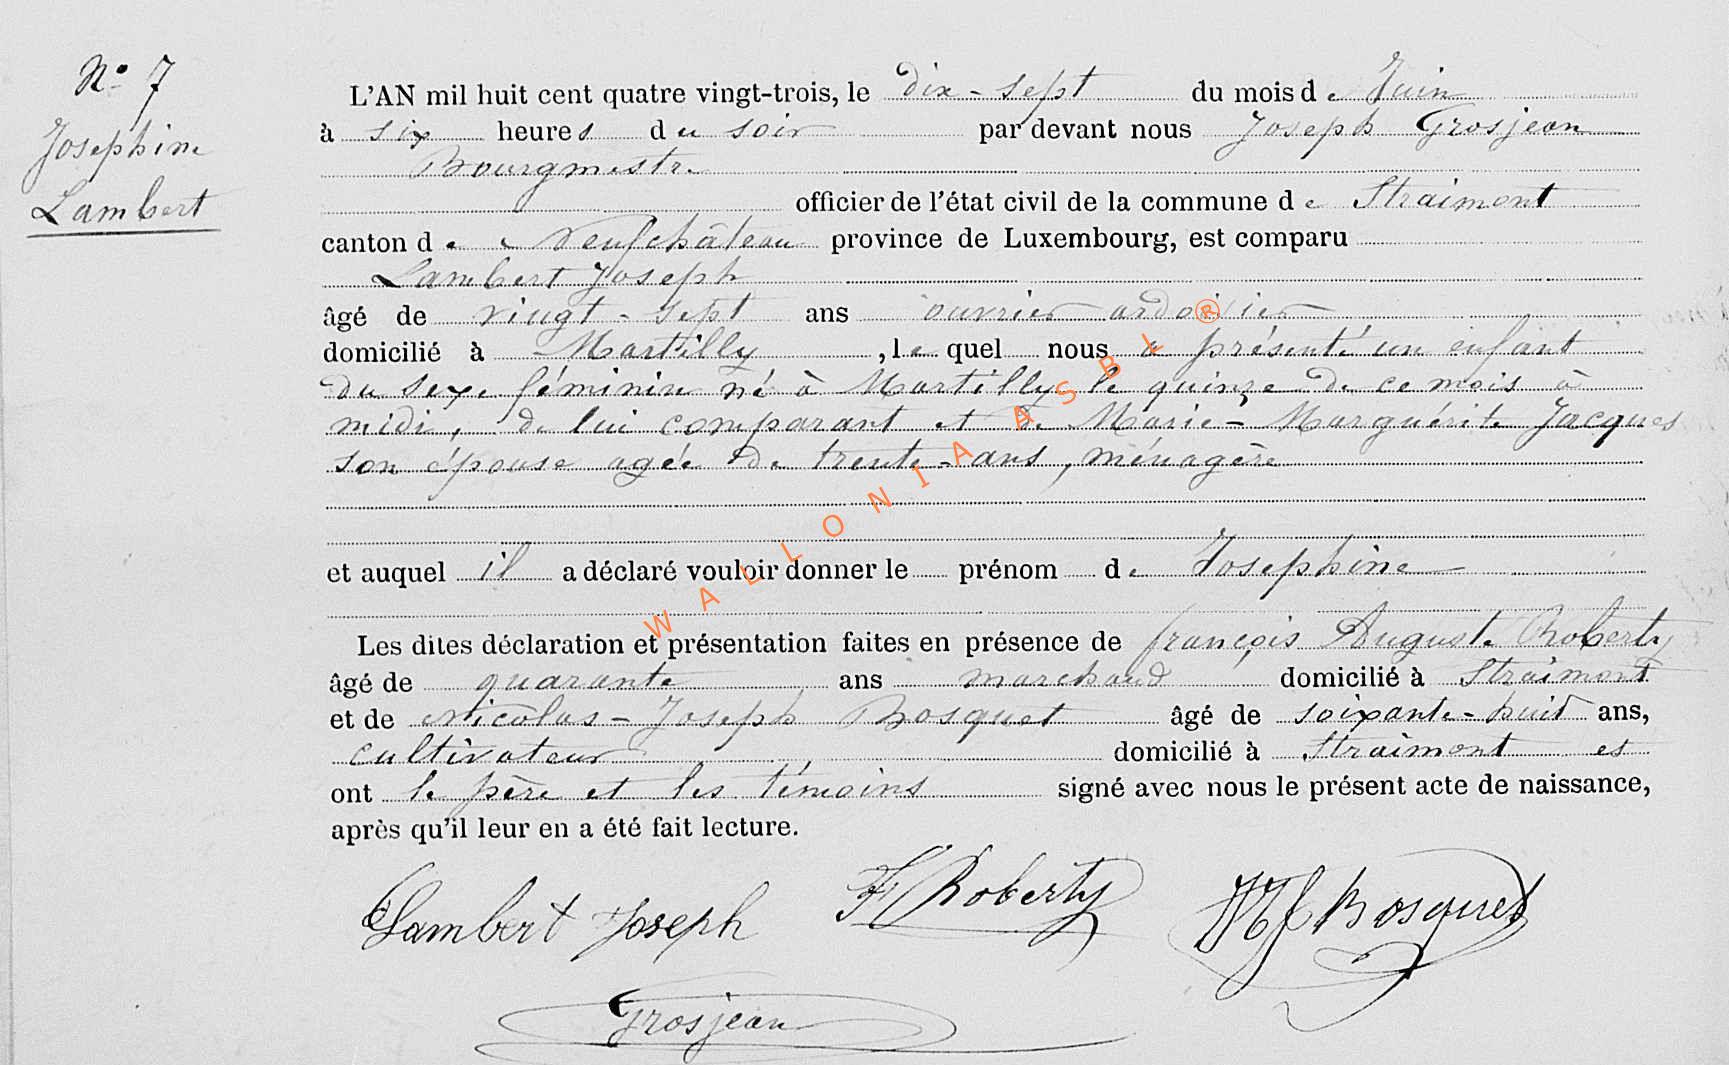 N° 7
Josephine
Lambert
L'AN mil huit cent quatre vingt-trois, le dix-sept du mois de Juin
à six heures du soir par devant nous Joseph Grosjean
Bourgmestre
officier de l'état civil de la commune de Straimont
canton de Neufchâteau province de Luxembourg, est comparu
Lambert Joseph
âgé de vingt-sept ans ouvrier ardoisier
domicilié à Martilly, le quel nous a présenté un enfant
du sexe féminin né à Martilly le quinze de ce mois à
midi, de lui comparant et de Marie-Marguérite Jacques
son épouse agée de trente-ans, ménagère
et auquel il a déclaré vouloir donner le prénom de Josephine
Les dites déclaration et présentation faites en présence de françois Auguste Roberty
âgé de quarante ans marchand domicilié à Straimont
et de Nicolas-Joseph Bosquet âgé de soixante-huit ans,
cultivateur domicilié à Straimont et
ont le père et les témoins signé avec nous le présent acte de naissance,
après qu'il leur en a été fait lecture.
Lambert Joseph F Roberty NJ Bosquet
Grosjean
WALLONIA ASBL ®